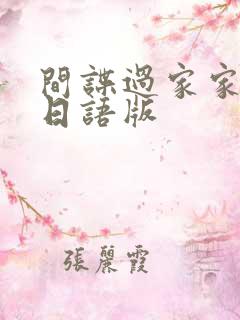 間諜過家家
日語版
張麗霞